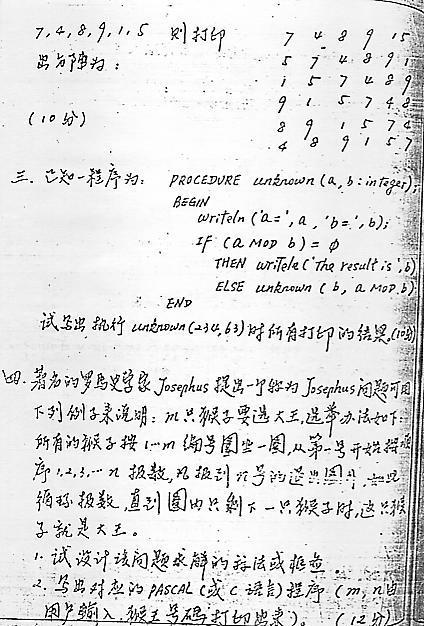 7,4,8,9,1,5 则打印 7 4 8 9 1 5
出方阵为: 5 7 4 8 9 1
1 5 7 4 8 9
9 1 5 7 4 8
(10分) 8 9 1 5 7 4
4 8 9 1 5 7
三. 已知一程序为: PROCEDURE unknown(a,b:integer);
BEGIN
writeln('a=',a,'b=',b);
If (a MOD b)=0
THEN writeln('The result is',b)
ELSE unknown(b, a MOD b)
END
试写出执行unknown(234,63)时所有打印的结果.(10分)
四. 著名的罗马史学家Josephus提出一个称为Josephus问题可用
下列例子来说明: m只猴子要选大王,选举办法如下
所有的猴子按1…m编号围坐一圈,从第一号开始按顺
序1,2,3,…n报数,凡报到n号的退出圈外,如此
循环报数,直到圈内只剩下一只猴子时,这只猴
子就是大王。
1. 试设计该问题求解的算法或框图.
2. 写出对应的PASCAL(或C语言)程序(m,n由
用户输入,猴王号码打印出来). (12分)